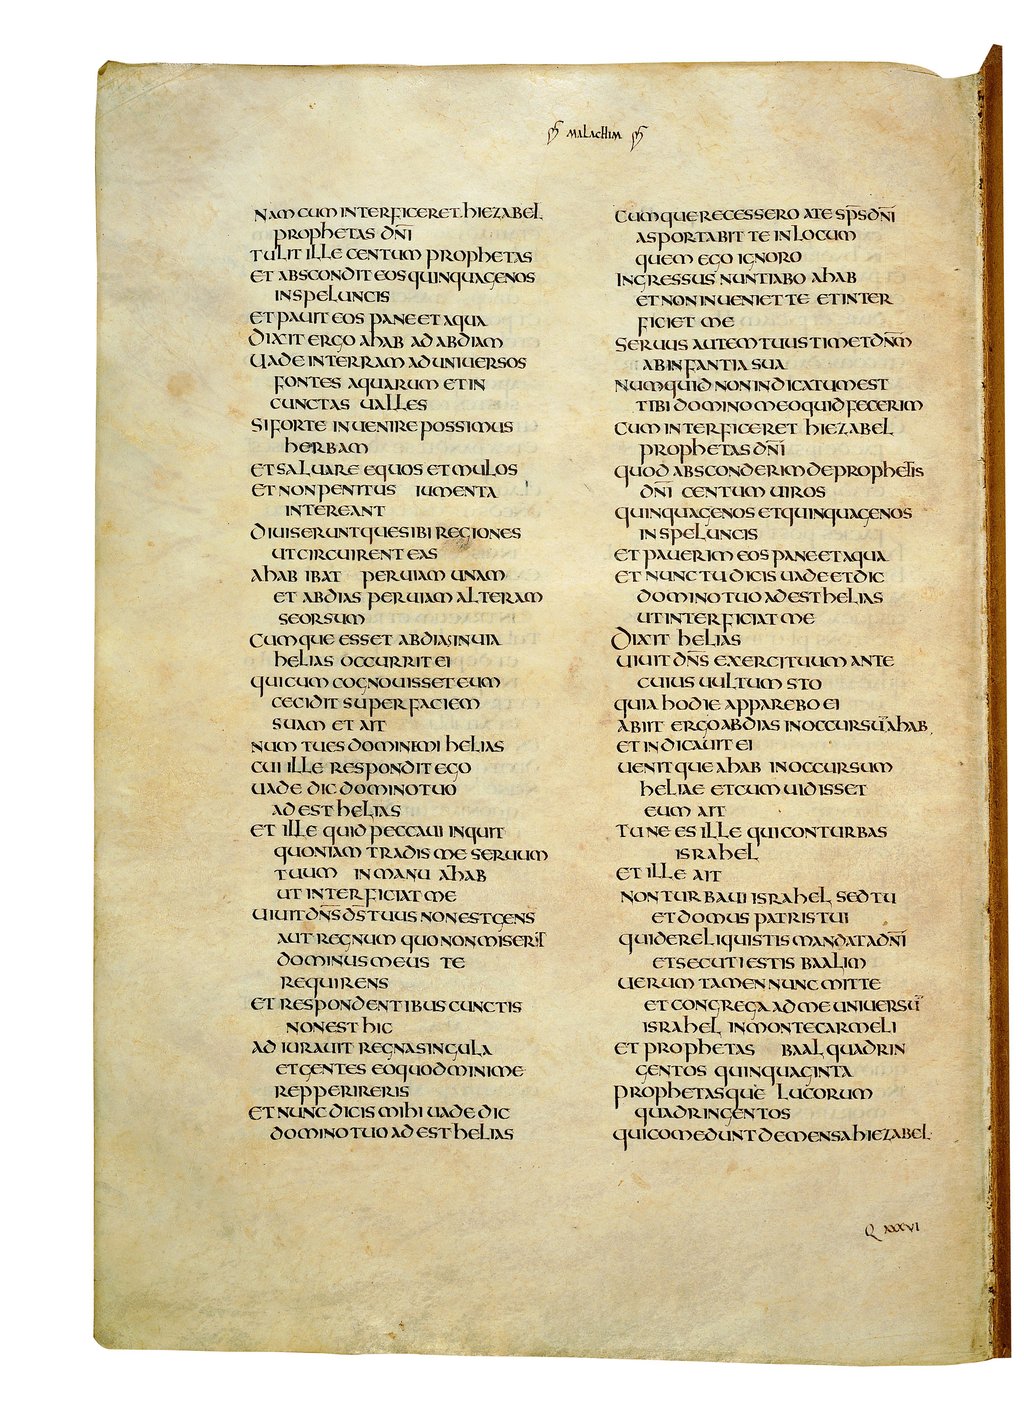 MALACHIM
NAM CUM INTERFICERET HIEZABEL
PROPHETAS DN̄I
TULIT ILLE CENTUM PROPHETAS
ET ABSCONDIT EOS QUINQUAGENOS
IN SPELUNCIS
ET PAUIT EOS PANE ET AQUA
DIXIT ERGO AHAB AD ABDIAM
UADE IN TERRAM AD UNIUERSOS
FONTES AQUARUM ET IN
CUNCTAS UALLES
SI FORTE INUENIRE POSSIMUS
HERBAM
ET SALUARE EQUOS ET MULOS
ET NON PENITUS IUMENTA
INTEREANT
DIUISERUNTQUE SIBI REGIONES
UT CIRCUIRENT EAS
AHAB IBAT PER UIAM UNAM
ET ABDIAS PER UIAM ALTERAM
SEORSUM
CUMQUE ESSET ABDIAS IN UIA
HELIAS OCCURRIT EI
QUI CUM COGNOUISSET EUM
CECIDIT SUPER FACIEM
SUAM ET AIT
NUM TU ES DOMINE MI HELIAS
CUI ILLE RESPONDIT EGO
UADE DIC DOMINO TUO
ADEST HELIAS
ET ILLE QUID PECCAUI INQUIT
QUONIAM TRADIS ME SERUUM
TUUM IN MANU AHAB
UT INTERFICIAT ME
UIUIT DN̄S DS̄ TUUS NON EST GENS
AUT REGNUM QUO NON MISERIT
DOMINUS MEUS TE
REQUIRENS
ET RESPONDENTIBUS CUNCTIS
NON EST HIC
ADIURAUIT REGNA SINGULA
ET GENTES EO QUOD MINIME
REPPERIRERIS
ET NUNC DICIS MIHI UADE DIC
DOMINO TUO ADEST HELIAS
CUMQUE RECESSERO A TE SPS̄ DN̄I
ASPORTABIT TE IN LOCUM
QUEM EGO IGNORO
INGRESSUS NUNTIABO AHAB
ET NON INUENIET TE ET INTER
FICIET ME
SERUUS AUTEM TUUS TIMET DN̄M
AB INFANTIA SUA
NUMQUID NON INDICATUM EST
TIBI DOMINO MEO QUID FECERIM
CUM INTERFICERET HIEZABEL
PROPHETAS DN̄I
QUOD ABSCONDERIM DE PROPHETIS
DN̄I CENTUM UIROS
QUINQUAGENOS ET QUINQUAGENOS
IN SPELUNCIS
ET PAUERIM EOS PANE ET AQUA
ET NUNC TU DICIS UADE ET DIC
DOMINO TUO ADEST HELIAS
UT INTERFICIAT ME
DIXIT HELIAS
UIUIT DN̄S EXERCITUUM ANTE
CUIUS UULTUM STO
QUIA HODIE APPAREBO EI
ABIIT ERGO ABDIAS IN OCCURSŪ AHAB
ET INDICAUIT EI
UENITQUE AHAB IN OCCURSUM
HELIAE ET CUM UIDISSET
EUM AIT
TUNE ES ILLE QUI CONTURBAS
ISRAHEL
ET ILLE AIT
NON TURBAUI ISRAHEL SED TU
ET DOMUS PATRIS TUI
QUI DERELIQUISTIS MANDATA DN̄I
ET SECUTI ESTIS BAALIM
UERUM TAMEN NUNC MITTE
ET CONGREGA AD ME UNIUERSŪ
ISRAHEL IN MONTE CARMELI
ET PROPHETAS BAAL QUADRIN
GENTOS QUINQUAGINTA
PROPHETASQUE LUCORUM
QUADRINGENTOS
QUI COMEDUNT DE MENSA HIEZABEL
Q XXXVI